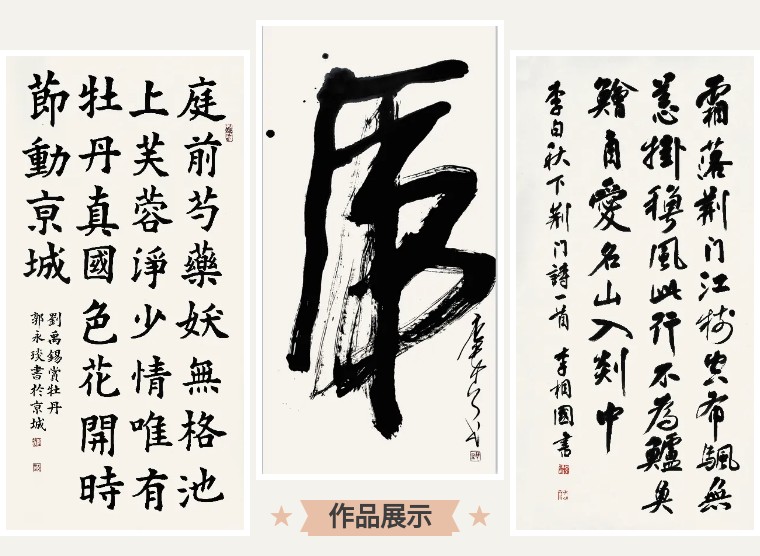 庭前芍藥妖無格池
上芙蓉淨少情唯有
牡丹真國色花開時
節動亰城
劉禹錫賞牡丹
郭永琰書於京城
虎
霜落荆门江树空布颿無
恙掛穐風此行不為鱸魚
鱠自愛名山入剡中
李白秋下荆门詩一首 李相國書
作品展示